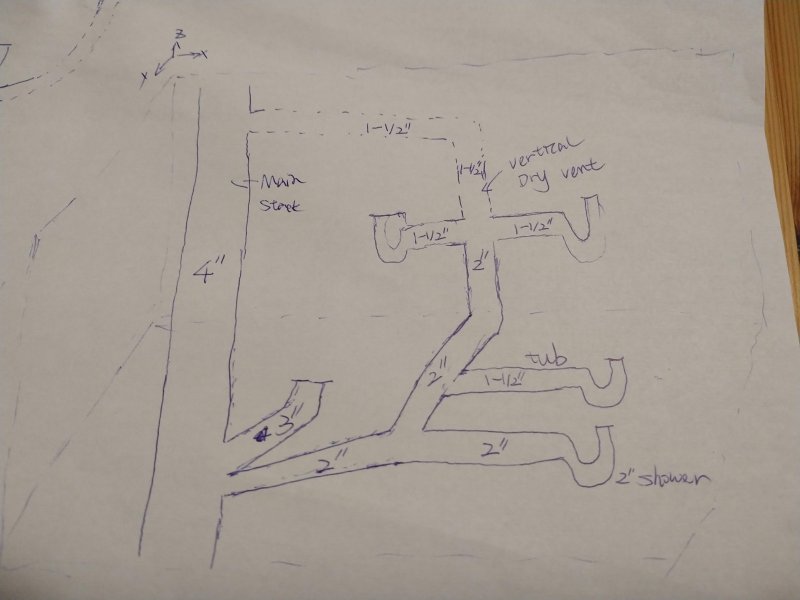 Z
X
Y
1-1/2"
1-1/2"
vertical
Dry vent
Main
Stack
1-1/2"
1-1/2"
4"
2"
tub
2"
1-1/2"
3"
2"
2"
2" shower